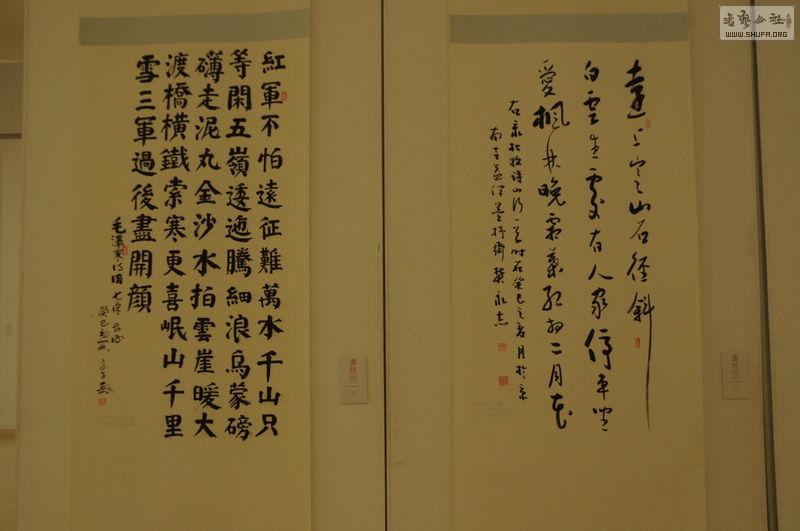 遠上寒山石徑斜
白雲生處有人家停車坐
愛楓林晚霜葉紅於二月花
右录杜牧诗山行一首时在癸巳之夏月於京
紅軍不怕遠征難萬水千山只
等閑五嶺逶迤騰細浪烏蒙磅
礴走泥丸金沙水拍雲崖暖大
渡橋橫鐵索寒更喜岷山千里
雪三軍過後盡開顏
毛澤東詩詞七律長征
癸巳初夏
書藝公社
WWW.SHUFA.ORG